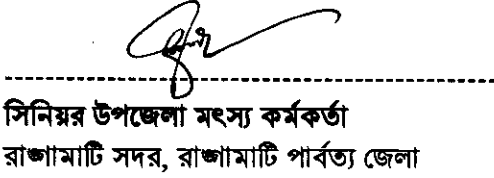 সিনিয়র উপজেলা মৎস্য কর্মকর্তা
রাঙ্গামাটি সদর, রাঙ্গামাটি পার্বত্য জেলা